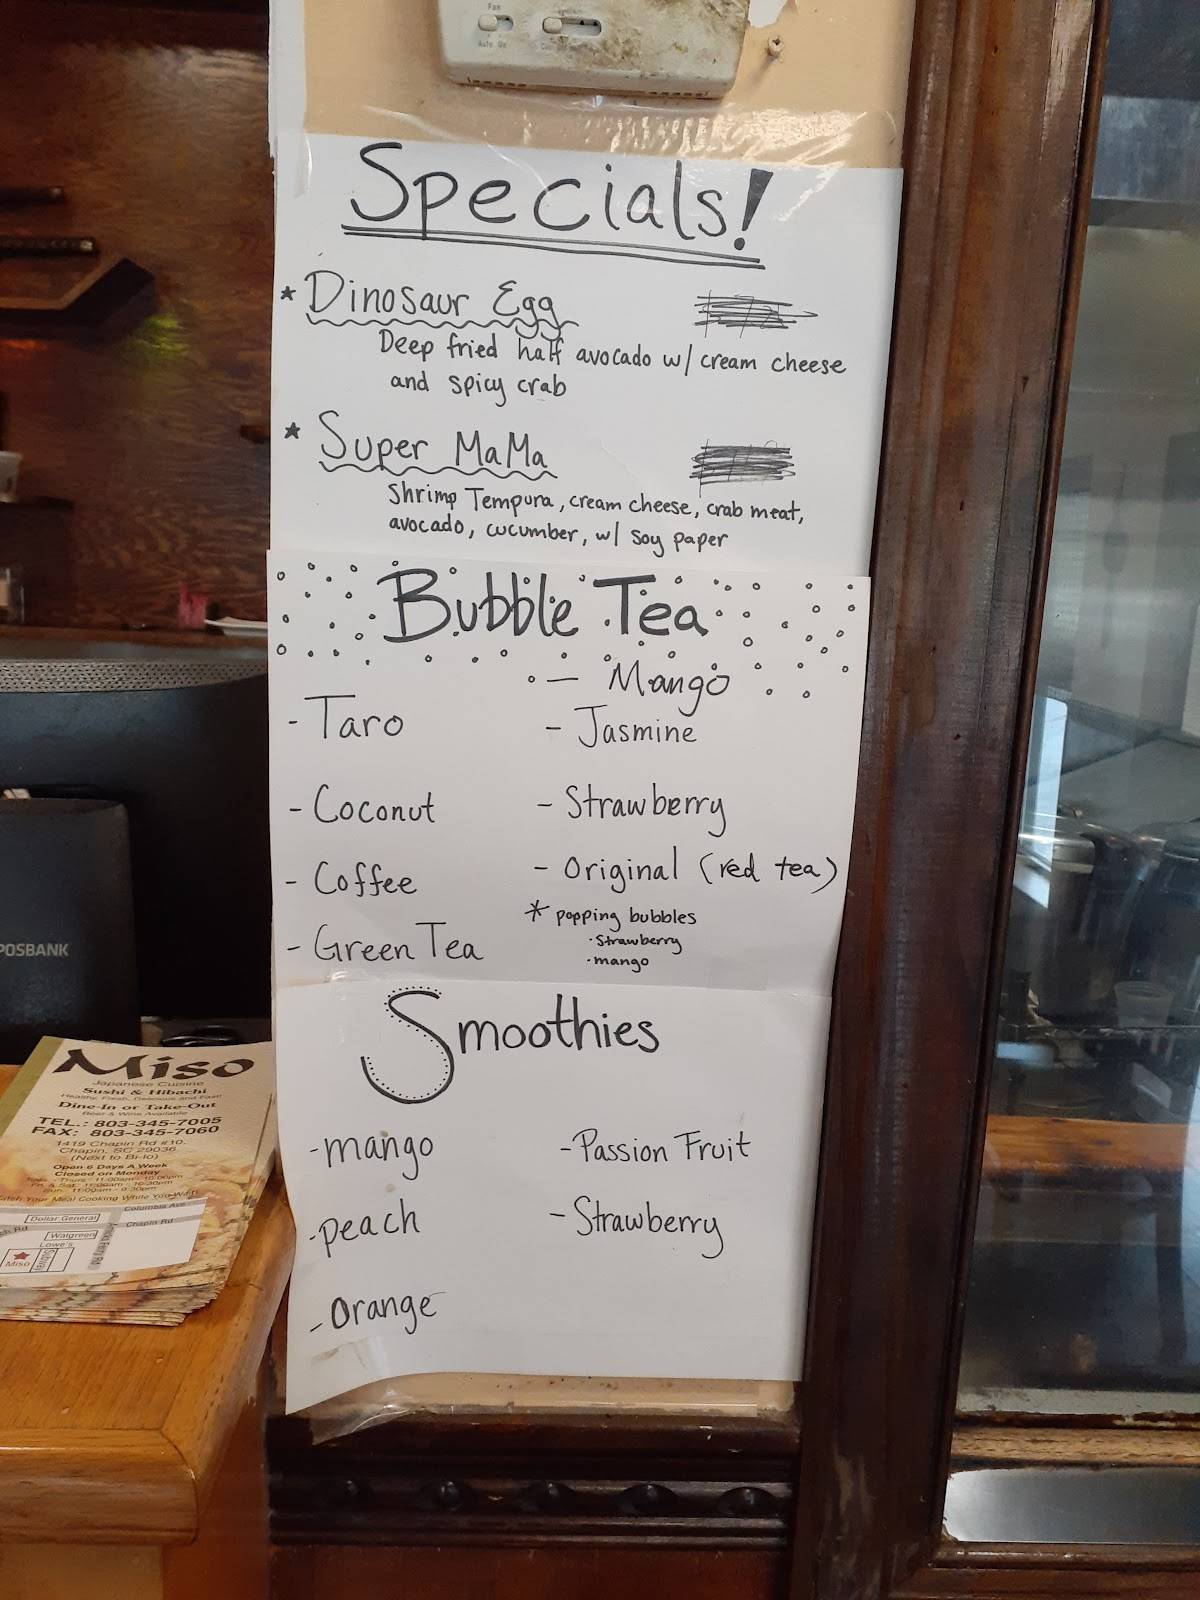 Fan
Auto On
Specials!
* Dinosaur Egg
Deep fried half avocado w/ cream cheese
and spicy crab
* Super MaMa
Shrimp Tempura, cream cheese, crab meat,
avocado, cucumber, w/ soy paper
Bubble Tea
- Taro
- Coconut
- Coffee
- Green Tea
- Mango
- Jasmine
- Strawberry
- Original (red tea)
* popping bubbles
· Strawberry
· mango
Smoothies
- mango
- peach
- orange
- Passion Fruit
- Strawberry
POSBANK
Miso
Japanese Cuisine
Sushi & Hibachi
Healthy, Fresh, Delicious and Fast!
Dine-In or Take-Out
Beer & Wine Available
TEL.: 803-345-7005
FAX: 803-345-7060
1419 Chapin Rd #10,
Chapin, SC 29036
(Next to Bi-lo)
Open 6 Days A Week
Closed on Monday
Columbia Ave
Dollar General
Chapin Rd
Walgreen
Lowe's
Miso
Subway